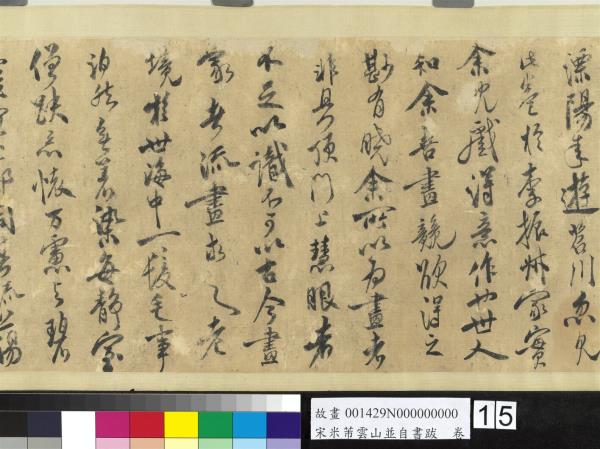 溧陽來遊苕川忽見
此卷於李振叔家實
余兒戲得意作也世人
知余善畫競欲得之
尠有曉余所以為畫者
非具頂門上慧眼者
不足以識不可以古今畫
家者流畫求之老
境於世海中一髮毛事
泊然無著染每靜室
僧趺忘懷万慮与碧
虛寥廓同其流蕩
故畫 001429N000000000
宋米芾雲山並自書跋 卷
15